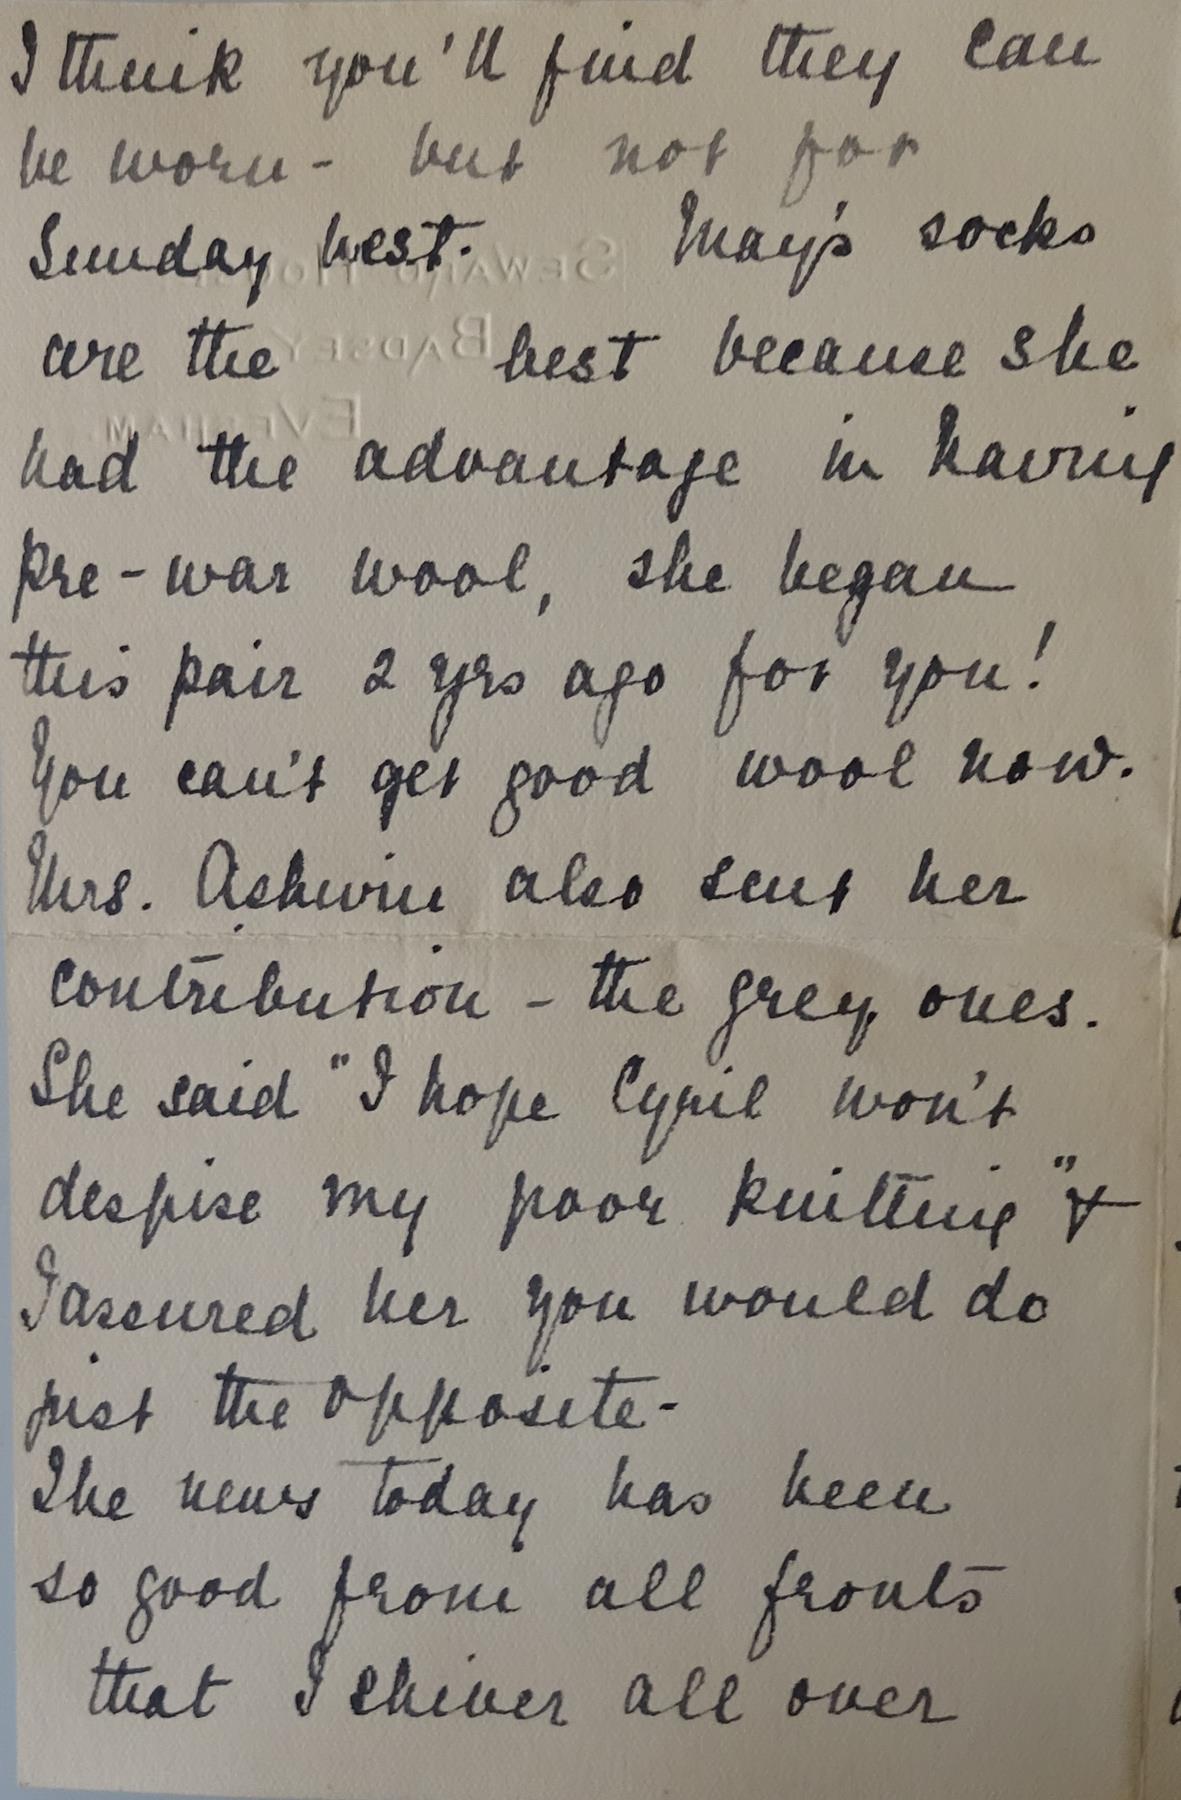 I think you'll find they can
be worn - but not for
Sunday best. May's socks
are the best because she
had the advantage in having
pre-war wool, she began
this pair 2 yrs ago for you!
You can't get good wool now.
Mrs. Ashwin also sent her
contribution - the grey ones.
She said "I hope Cyril won't
despise my poor knitting" &
I assured her you would do
just the opposite-
The news today has been
so good from all fronts
that I shiver all over
SEWARD HOUSE
BADSEY
EVESHAM.